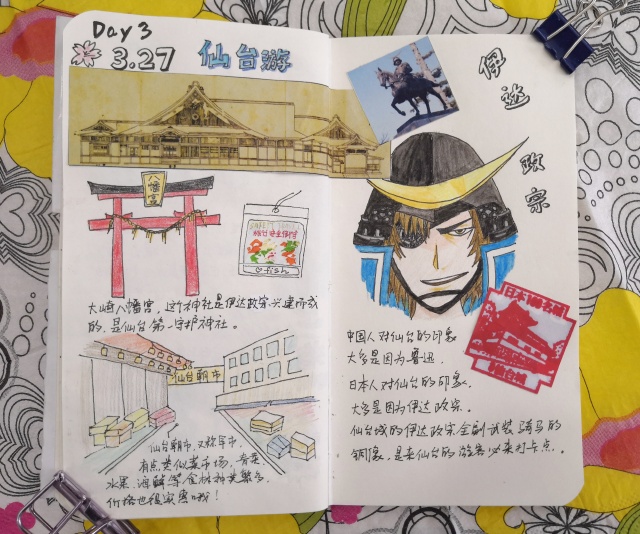 Day 3
3.27 仙台游
八幡宫
fish
大崎八幡宫，这个神社是伊达政宗兴建而成
的，是仙台第一守护神社。
仙台朝市
仙台朝市，又称早市，
有点类似菜市场，有菜
水果、海鲜等食材种类繁多，
价格也很实惠哦！
伊达
政宗
中国人对仙台的印象
大多是因为鲁迅，
日本人对仙台的印象，
大多是因为伊达政宗。
仙台城的伊达政宗全副武装骑马的
铜像，是来仙台的游客必来打卡点。